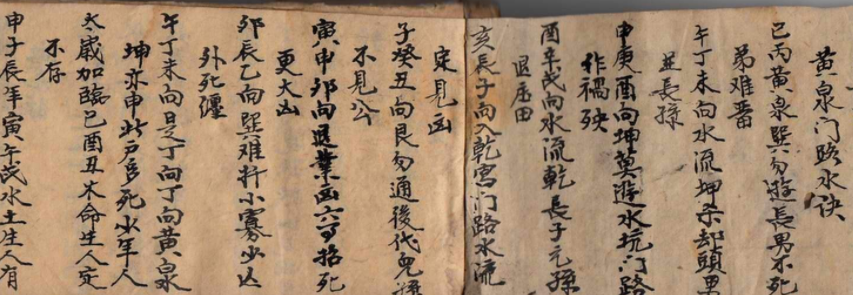 黄泉门路水诀
巳丙黄泉巽勿逰長男不死
弟难晋
午丁未向水流坤杀却頭男
並長孫
申庚酉向坤莫逰水坑门路
作禍殃
酉辛戌向水流乾長子元孫
退庄田
亥長子向入乾宫门路水流
定見凶
子癸丑向艮勿通後代児孫
不見公
寅甲卯向退業凶六可招死
更大凶
卯辰乙向巽难扦小寡少亾
外死纒
午丁未向是丁向丁向黄泉
坤亦申此户多死少年人
太歳加臨巳酉丑木命生人定
不存
申子辰年寅午戌水土生人有